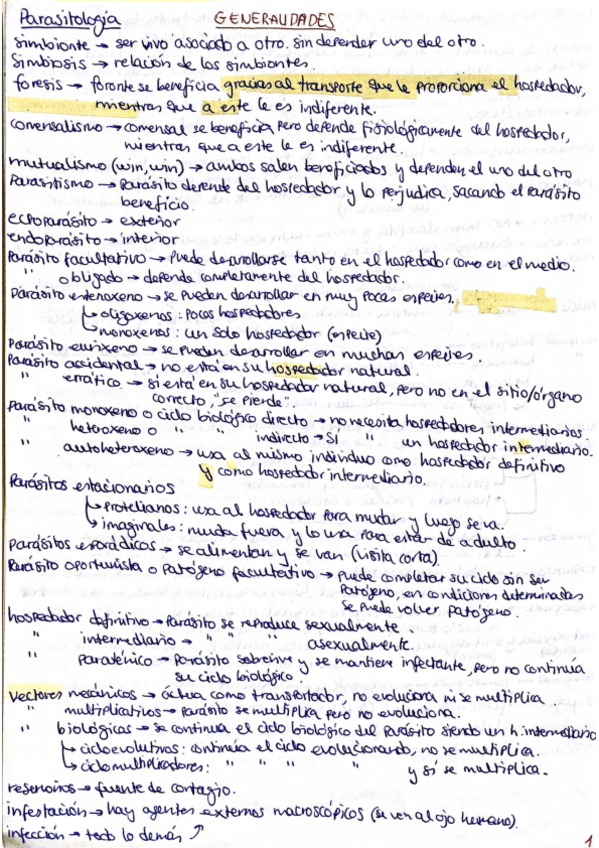 Parasitología GENERALIDADES
simbionte → ser vivo asociado a otro, sin depender uno del otro.
Simbiosis → relación de los simbiontes.
foresis → foronte se beneficia gracias al transporte que le proporciona el hospedador,
mientras que a este le es indiferente.
comensalismo → comensal se beneficia pero depende fisiológicamente del hospedador,
mientras que a este le es indiferente.
mutualismo (win, win) → ambos salen beneficiados y dependen el uno del otro
Parasitismo → Parásito depende del hospedador y lo perjudica, sacando el parásito
beneficio.
ectoparásito → exterior
endoparásito → interior
Parásito facultativo → Puede desarrollarse tanto en el hospedador como en el medio.
" obligado → depende completamente del hospedador.
Parásito estenoxeno → se pueden desarrollar en muy pocas especies.
↳ oligoxenos: pocos hospedadores
↳ monoxenos: un solo hospedador (especie)
Parásito eurixeno → se pueden desarrollar en muchas especies.
Parásito accidental → no está en su hospedador natural.
" errático → si está en su hospedador natural, pero no en el sitio/órgano
correcto, "se pierde".
Parásito monoxeno o ciclo biológico directo → no necesita hospedadores intermediarios.
" heteroxeno o " " indirecto → Sí " un hospedador intermediario.
" autoheteroxeno → usa al mismo individuo como hospedador definitivo
y como hospedador intermediario.
Parásitos estacionarios
↳ Protelianos: usa al hospedador para mudar y luego se va.
↳ imaginales: muda fuera, y lo usa para estar de adulto.
Parásitos esporádicos → se alimentan y se van (visita corta).
Parásito oportunista o Patógeno facultativo → Puede completar su ciclo sin ser
Patógeno, en condiciones determinadas
se puede volver patógeno.
hospedador definitivo → Parásito se reproduce sexualmente.
" intermediario → " " " asexualmente.
" Paraténico → Parásito sobrevive y se mantiene infectante, pero no continúa
su ciclo biológico.
Vectores mecánicos → actua como transportador, no evoluciona ni se multiplica
" multiplicativos → Parásito se multiplica pero no evoluciona.
" biológicos → se continua el ciclo biológico del Parásito siendo un h. intermediario
↳ cicloevolutivos: continúa el ciclo evolucionando, no se multiplica.
↳ ciclomultiplicadores: " " " " y sí se multiplica.
reservorios → fuente de contagio.
infestación → hay agentes externos macroscópicos (se ven al ojo humano).
infección → todo lo demás ↗
1